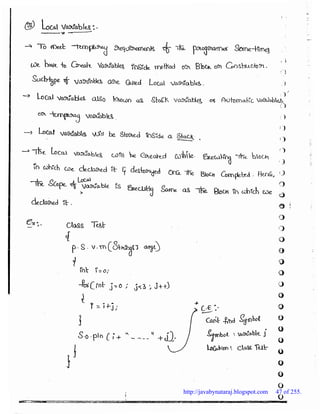 ③ Local Variables :-
→ To meet temporary requirements of the programmer Some-times
we have to Create Variables inside method or Block or Constructor.
Such type of variables are Called Local variables.
→ Local variables also known as Stack variables or Automatic variables
or temporary variables
→ Local variables will be Stored inside a Stack.
→ The Local variables will be Created while Executing the block
in which we declared it & destroyed Once the Block Completed. Hence,
the Scope of Local variable is Exactly Same as The Block in which we
declared it.
Ex:- class Test
{
p. s. v. m(String[] args)
{
int i=0;
for(int j=0; j<3; j++)
{
i = i+j;
}
S.o.pln(i + "----" + j);
}
}
C.E:-
Can't find Symbol
Symbol : variable j
Location : class Test
http://javabynataraj.blogspot.com 47 of 255.